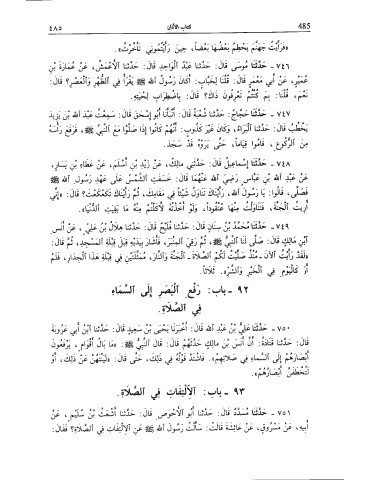 ٤٨٥ كتاب الأذان 485
«فَرَأَيْتُ جَهَنَّمَ يَحْطِمُ بَعْضُهَا بَعْضًا، حِينَ رَأَيْتُمُونِي تَأَخَّرْتُ».
٧٤٦ - حَدَّثَنَا مُوسَى قَالَ: حَدَّثَنَا عَبْدُ الْوَاحِدِ قَالَ: حَدَّثَنَا الْأَعْمَشُ، عَنْ عُمَارَةَ بْنِ
عُمَيْرٍ، عَنْ أَبِي مَعْمَرٍ قَالَ: قُلْنَا لِخَبَّابٍ: أَكَانَ رَسُولُ اللهِ ﷺ يَقْرَأُ فِي الظُّهْرِ وَالْعَصْرِ؟ قَالَ:
نَعَمْ، قُلْنَا: بِمَ كُنْتُمْ تَعْرِفُونَ ذَاكَ؟ قَالَ: بِاضْطِرَابِ لِحْيَتِهِ.
٧٤٧ - حَدَّثَنَا حَجَّاجٌ: حَدَّثَنَا شُعْبَةُ قَالَ: أَنْبَأَنَا أَبُو إِسْحَاقَ قَالَ: سَمِعْتُ عَبْدَ اللهِ بْنَ يَزِيدَ
يَخْطُبُ قَالَ: حَدَّثَنَا الْبَرَاءُ، وَكَانَ غَيْرَ كَذُوبٍ: أَنَّهُمْ كَانُوا إِذَا صَلَّوْا مَعَ النَّبِيِّ ﷺ، فَرَفَعَ رَأْسَهُ
مِنَ الرُّكُوعِ، قَامُوا قِيَامًا، حَتَّى يَرَوْهُ قَدْ سَجَدَ.
٧٤٨ - حَدَّثَنَا إِسْمَاعِيلُ قَالَ: حَدَّثَنِي مَالِكٌ، عَنْ زَيْدِ بْنِ أَسْلَمَ، عَنْ عَطَاءِ بْنِ يَسَارٍ،
عَنْ عَبْدِ اللهِ بْنِ عَبَّاسٍ رَضِيَ اللهُ عَنْهُمَا قَالَ: خَسَفَتِ الشَّمْسُ عَلَى عَهْدِ رَسُولِ اللهِ ﷺ
فَصَلَّى، قَالُوا: يَا رَسُولَ اللهِ، رَأَيْنَاكَ تَنَاوَلُ شَيْئًا فِي مَقَامِكَ، ثُمَّ رَأَيْنَاكَ تَكَعْكَعْتَ؟ قَالَ: «إِنِّي
أُرِيتُ الْجَنَّةَ، فَتَنَاوَلْتُ مِنْهَا عُنْقُودًا، وَلَوْ أَخَذْتُهُ لَأَكَلْتُمْ مِنْهُ مَا بَقِيَتِ الدُّنْيَا.
٧٤٩ - حَدَّثَنَا مُحَمَّدُ بْنُ سِنَانٍ قَالَ: حَدَّثَنَا فُلَيْحٌ قَالَ: حَدَّثَنَا هِلَالُ بْنُ عَلِيٍّ، عَنْ أَنَسِ
ابْنِ مَالِكٍ قَالَ: صَلَّى لَنَا النَّبِيُّ ﷺ، ثُمَّ رَقِيَ الْمِنْبَرَ، فَأَشَارَ بِيَدَيْهِ قِبَلَ قِبْلَةِ الْمَسْجِدِ، ثُمَّ قَالَ:
«لَقَدْ رَأَيْتُ الْآنَ - مُنْذُ صَلَّيْتُ لَكُمُ الصَّلَاةَ - الْجَنَّةَ وَالنَّارَ، مُمَثَّلَتَيْنِ فِي قِبْلَةِ هَذَا الْجِدَارِ، فَلَمْ
أَرَ كَالْيَوْمِ فِي الْخَيْرِ وَالشَّرِّ». ثَلَاثًا.
٩٢ - باب: رَفْعِ الْبَصَرِ إِلَى السَّمَاءِ
فِي الصَّلَاةِ.
٧٥٠ - حَدَّثَنَا عَلِيُّ بْنُ عَبْدِ اللهِ قَالَ: أَخْبَرَنَا يَحْيَى بْنُ سَعِيدٍ قَالَ: حَدَّثَنَا ابْنُ أَبِي عَرُوبَةَ
قَالَ: حَدَّثَنَا قَتَادَةُ: أَنَّ أَنَسَ بْنَ مَالِكٍ حَدَّثَهُمْ قَالَ: قَالَ النَّبِيُّ ﷺ: «مَا بَالُ أَقْوَامٍ، يَرْفَعُونَ
أَبْصَارَهُمْ إِلَى السَّمَاءِ فِي صَلَاتِهِمْ». فَاشْتَدَّ قَوْلُهُ فِي ذَلِكَ، حَتَّى قَالَ: «لَيَنْتَهُنَّ عَنْ ذَلِكَ، أَوْ
لَتُخْطَفَنَّ أَبْصَارُهُمْ».
٩٣ - باب: الْالْتِفَاتِ فِي الصَّلَاةِ.
٧٥١ - حَدَّثَنَا مُسَدَّدٌ قَالَ: حَدَّثَنَا أَبُو الْأَحْوَصِ قَالَ: حَدَّثَنَا أَشْعَثُ بْنُ سُلَيْمٍ، عَنْ
أَبِيهِ، عَنْ مَسْرُوقٍ، عَنْ عَائِشَةَ قَالَتْ: سَأَلْتُ رَسُولَ اللهِ ﷺ عَنِ الِالْتِفَاتِ فِي الصَّلَاةِ؟ فَقَالَ: